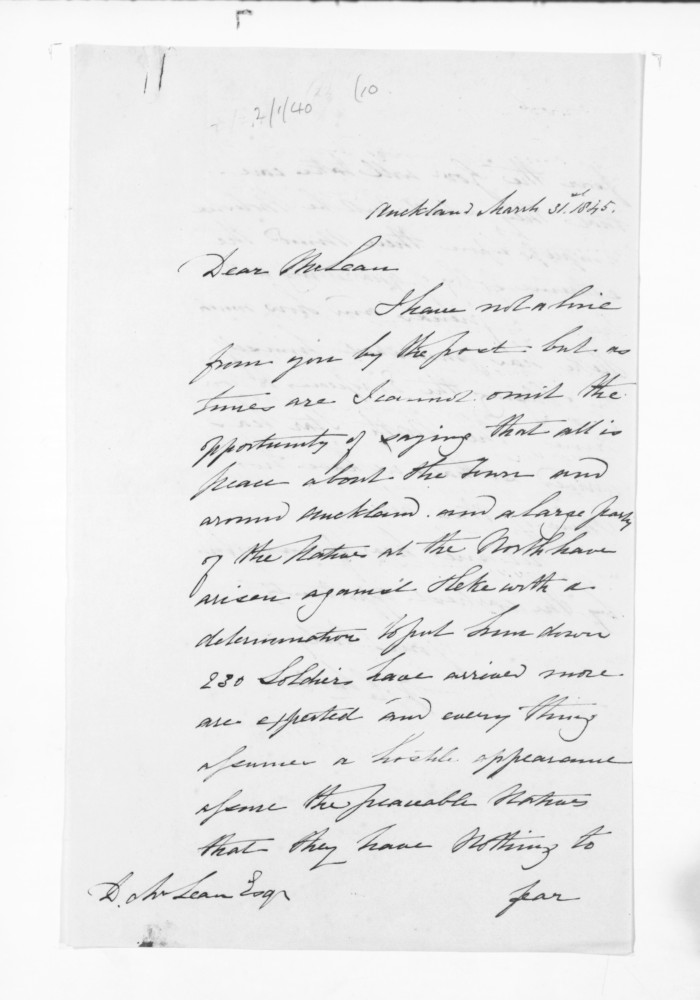 11
2/1/40 (10
Auckland March 31st 1845.
Dear McLean
I have not a line
from you by the post but as
times are I cannot omit the
opportunity of saying that all is
peace about the Town and
around Auckland. and a large party
of the Natives at the North have
arisen against Heke with a
determination to put him down
230 Soldiers have arrived more
are expected and every thing
assumes a hostile appearance
assure the peaceable Natives
that they have Nothing to
D. McLean Esqr fear